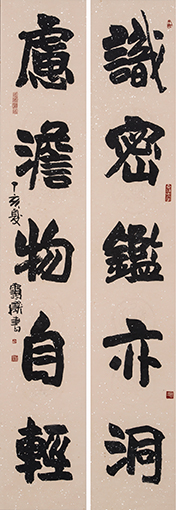 識密鑑亦洞
慮澹物自輕
丁亥夏